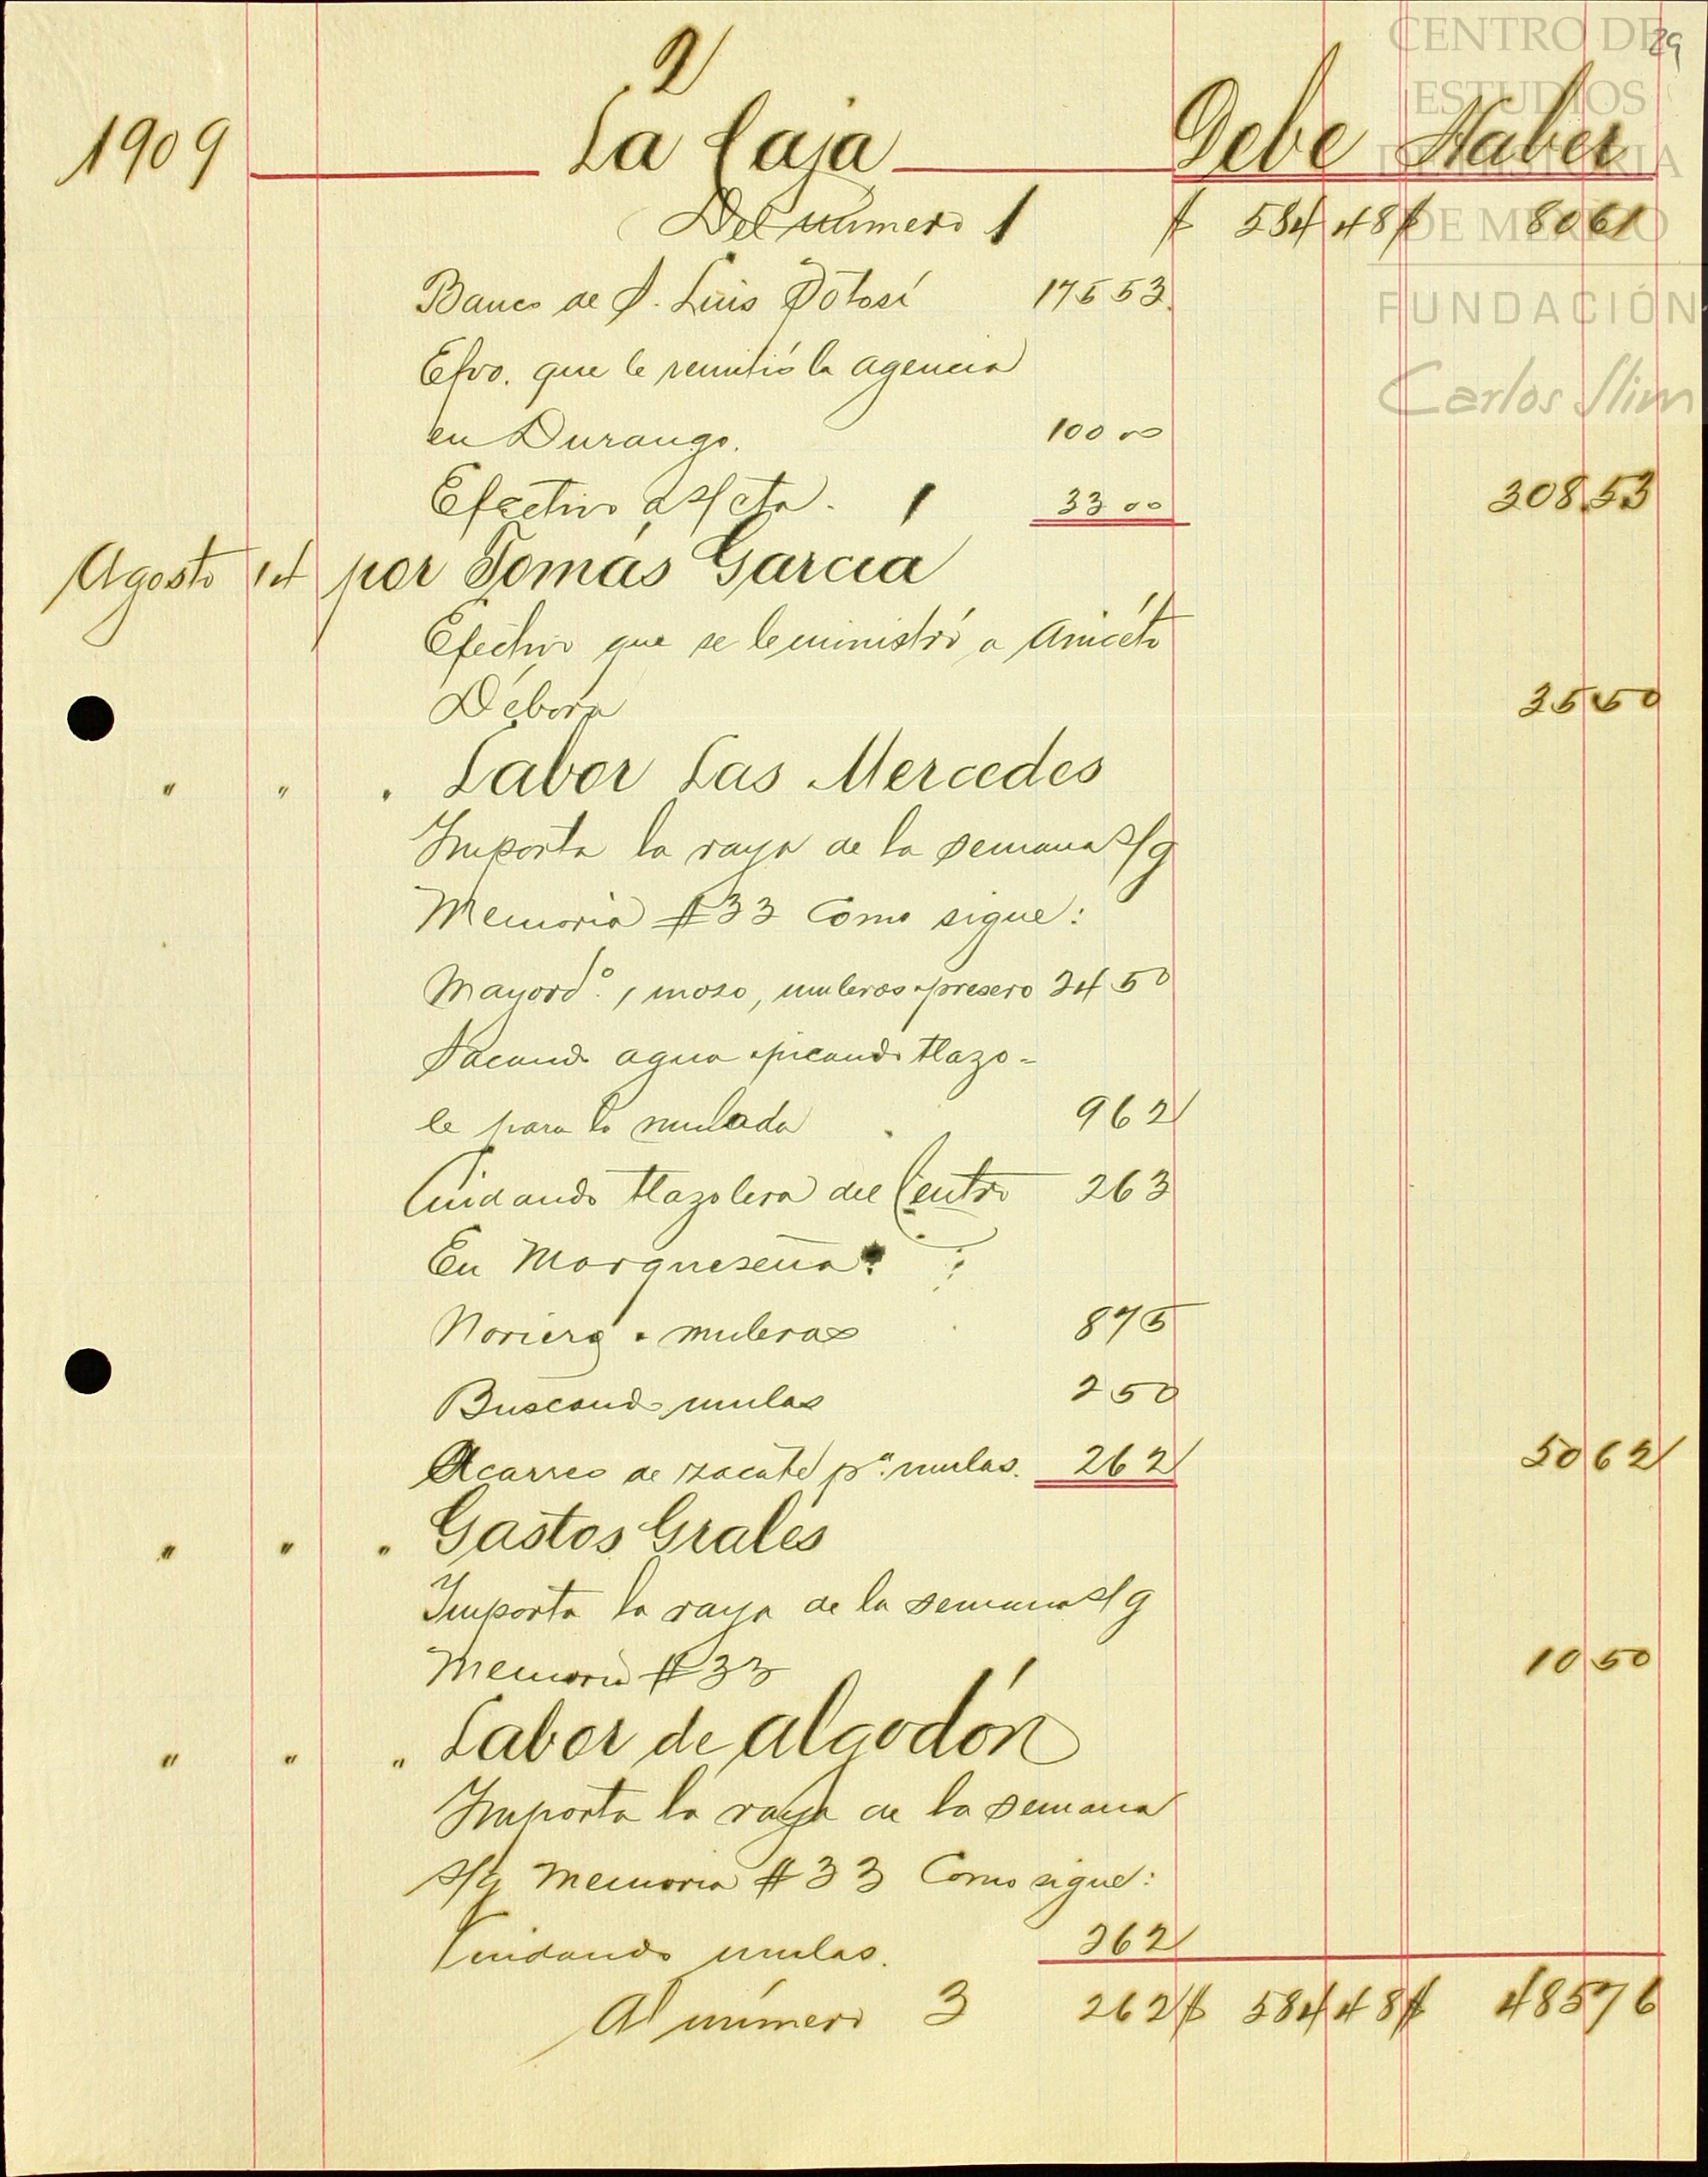 CENTRO DE
ESTUDIOS
DE HISTORIA
DE MÉXICO
FUNDACIÓN
Carlos Slim
29
2
1909 La Caja Debe Haber
Del número 1 $ 584 48 $ 80 61
Banco de S. Luis Potosí 175 53
Efvo. que le remitió la agencia
en Durango. 100 00
Efectivo a s/cta. 33 00 308 53
Agosto 14 por Tomás García
Efectivo que se le ministró a Aniceto
Débora 35 50
" " " Labor Las Mercedes
Importa la raya de la semana s/g
Memoria #33 Como sigue:
Mayord°., moso, muleros y presero 24 50
Sacando agua y picando tlazo=
le para la mulada 9 62
Cuidando tlazolera del Centro 2 63
En Marqueseña:
Noriero y muleros 8 75
Buscando mulas 2 50
Acarreo de zacate pª. mulas. 2 62 50 62
" " " Gastos Grales
Importa la raya de la semana s/g
Memoria #33 10 50
" " " Labor de algodón
Importa la raya de la semana
s/g Memoria #33 Como sigue:
Cuidando mulas. 2 62
Al número 3 2 62 $ 584 48 $ 485 76